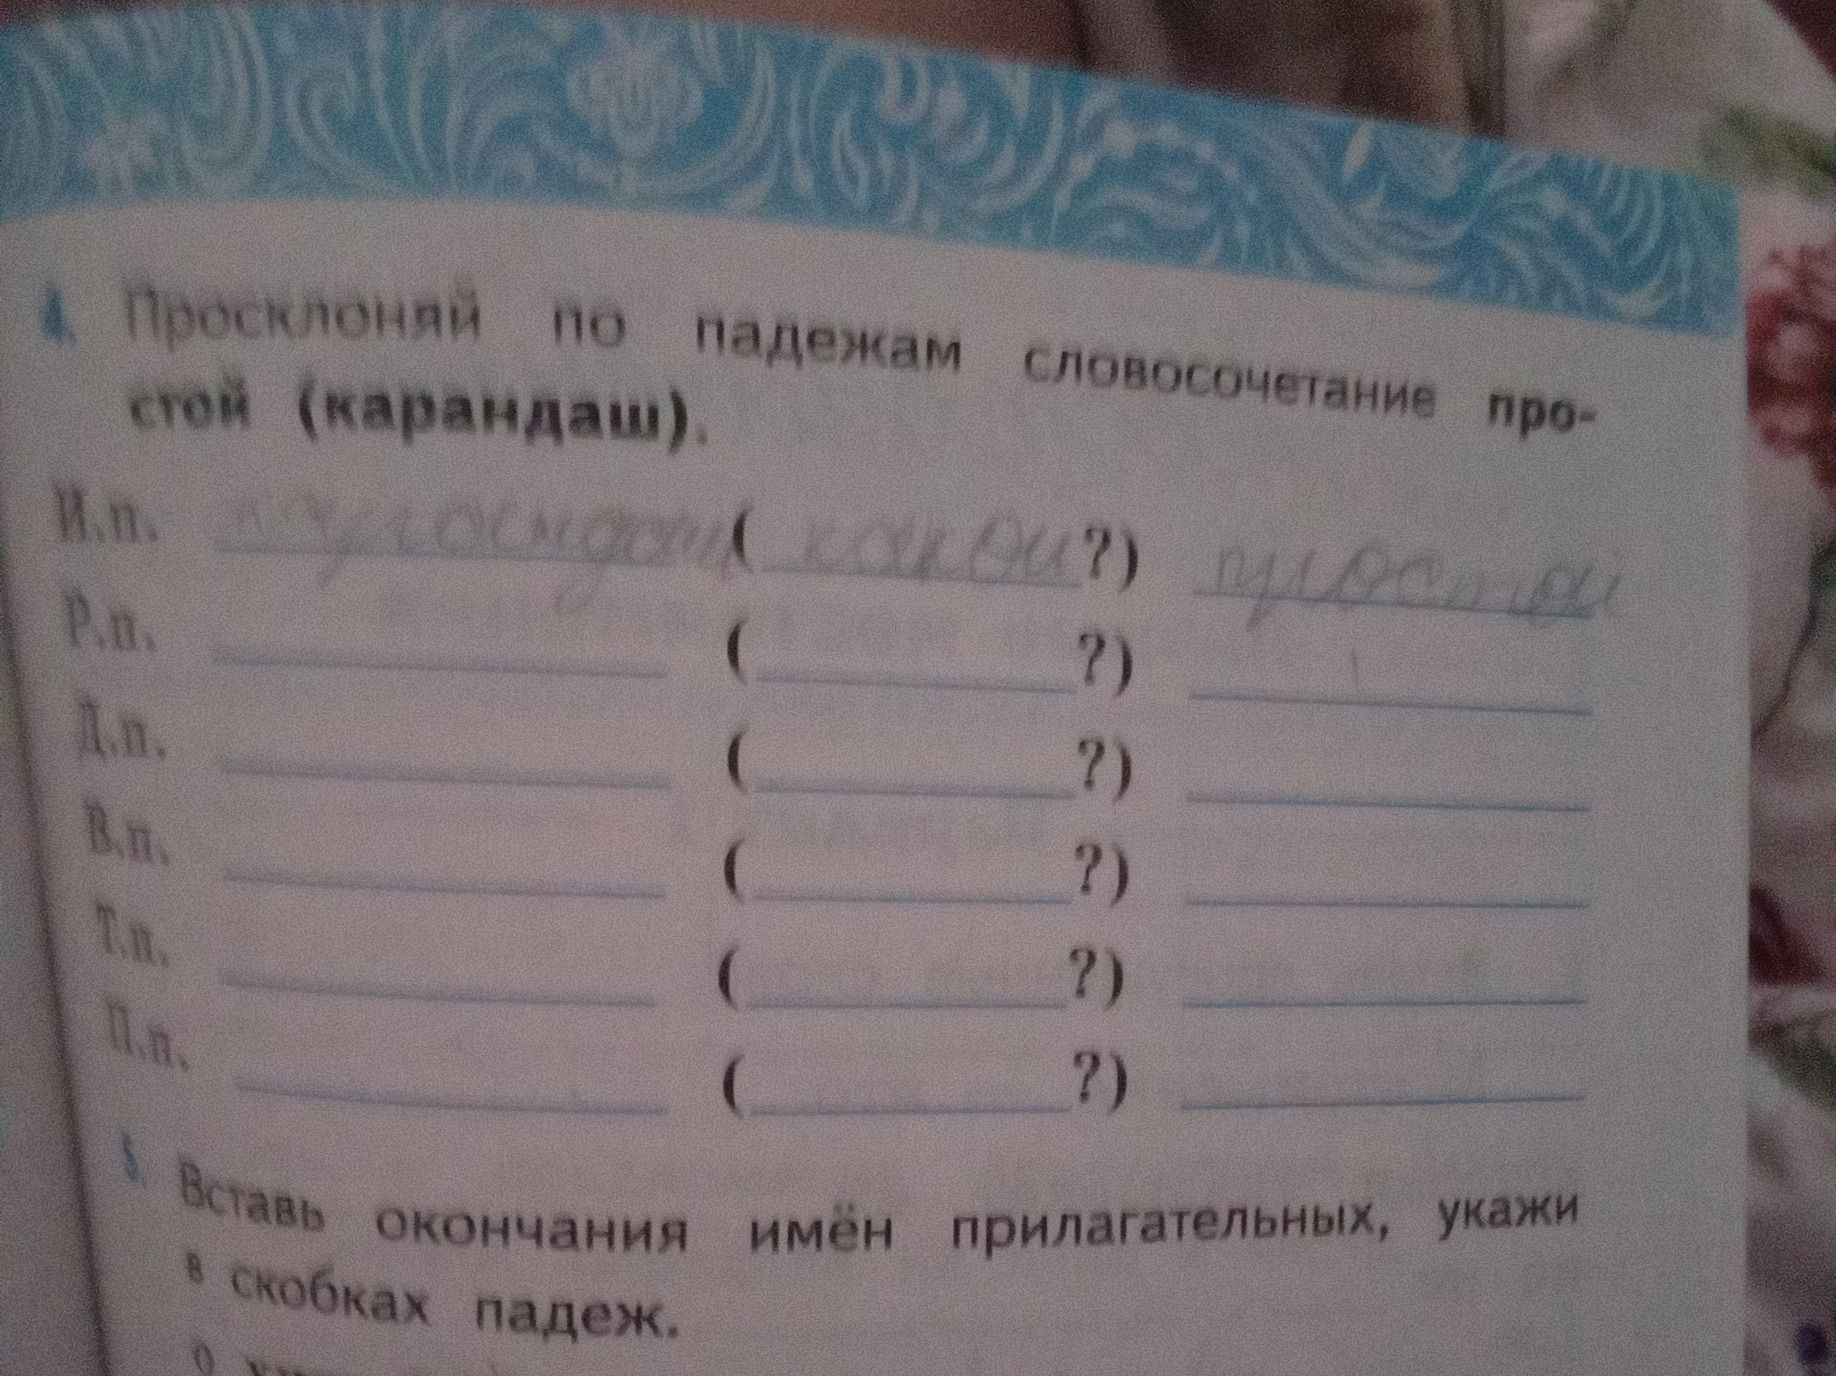 4. Просклоняй по падежам словосочетание про-
стой (карандаш).
И.п. карандаш ( какой ?) простой
Р.п. ( ?)
Д.п. ( ?)
В.п. ( ?)
Т.п. ( ?)
П.п. ( ?)
5. Вставь окончания имён прилагательных, укажи
в скобках падеж.